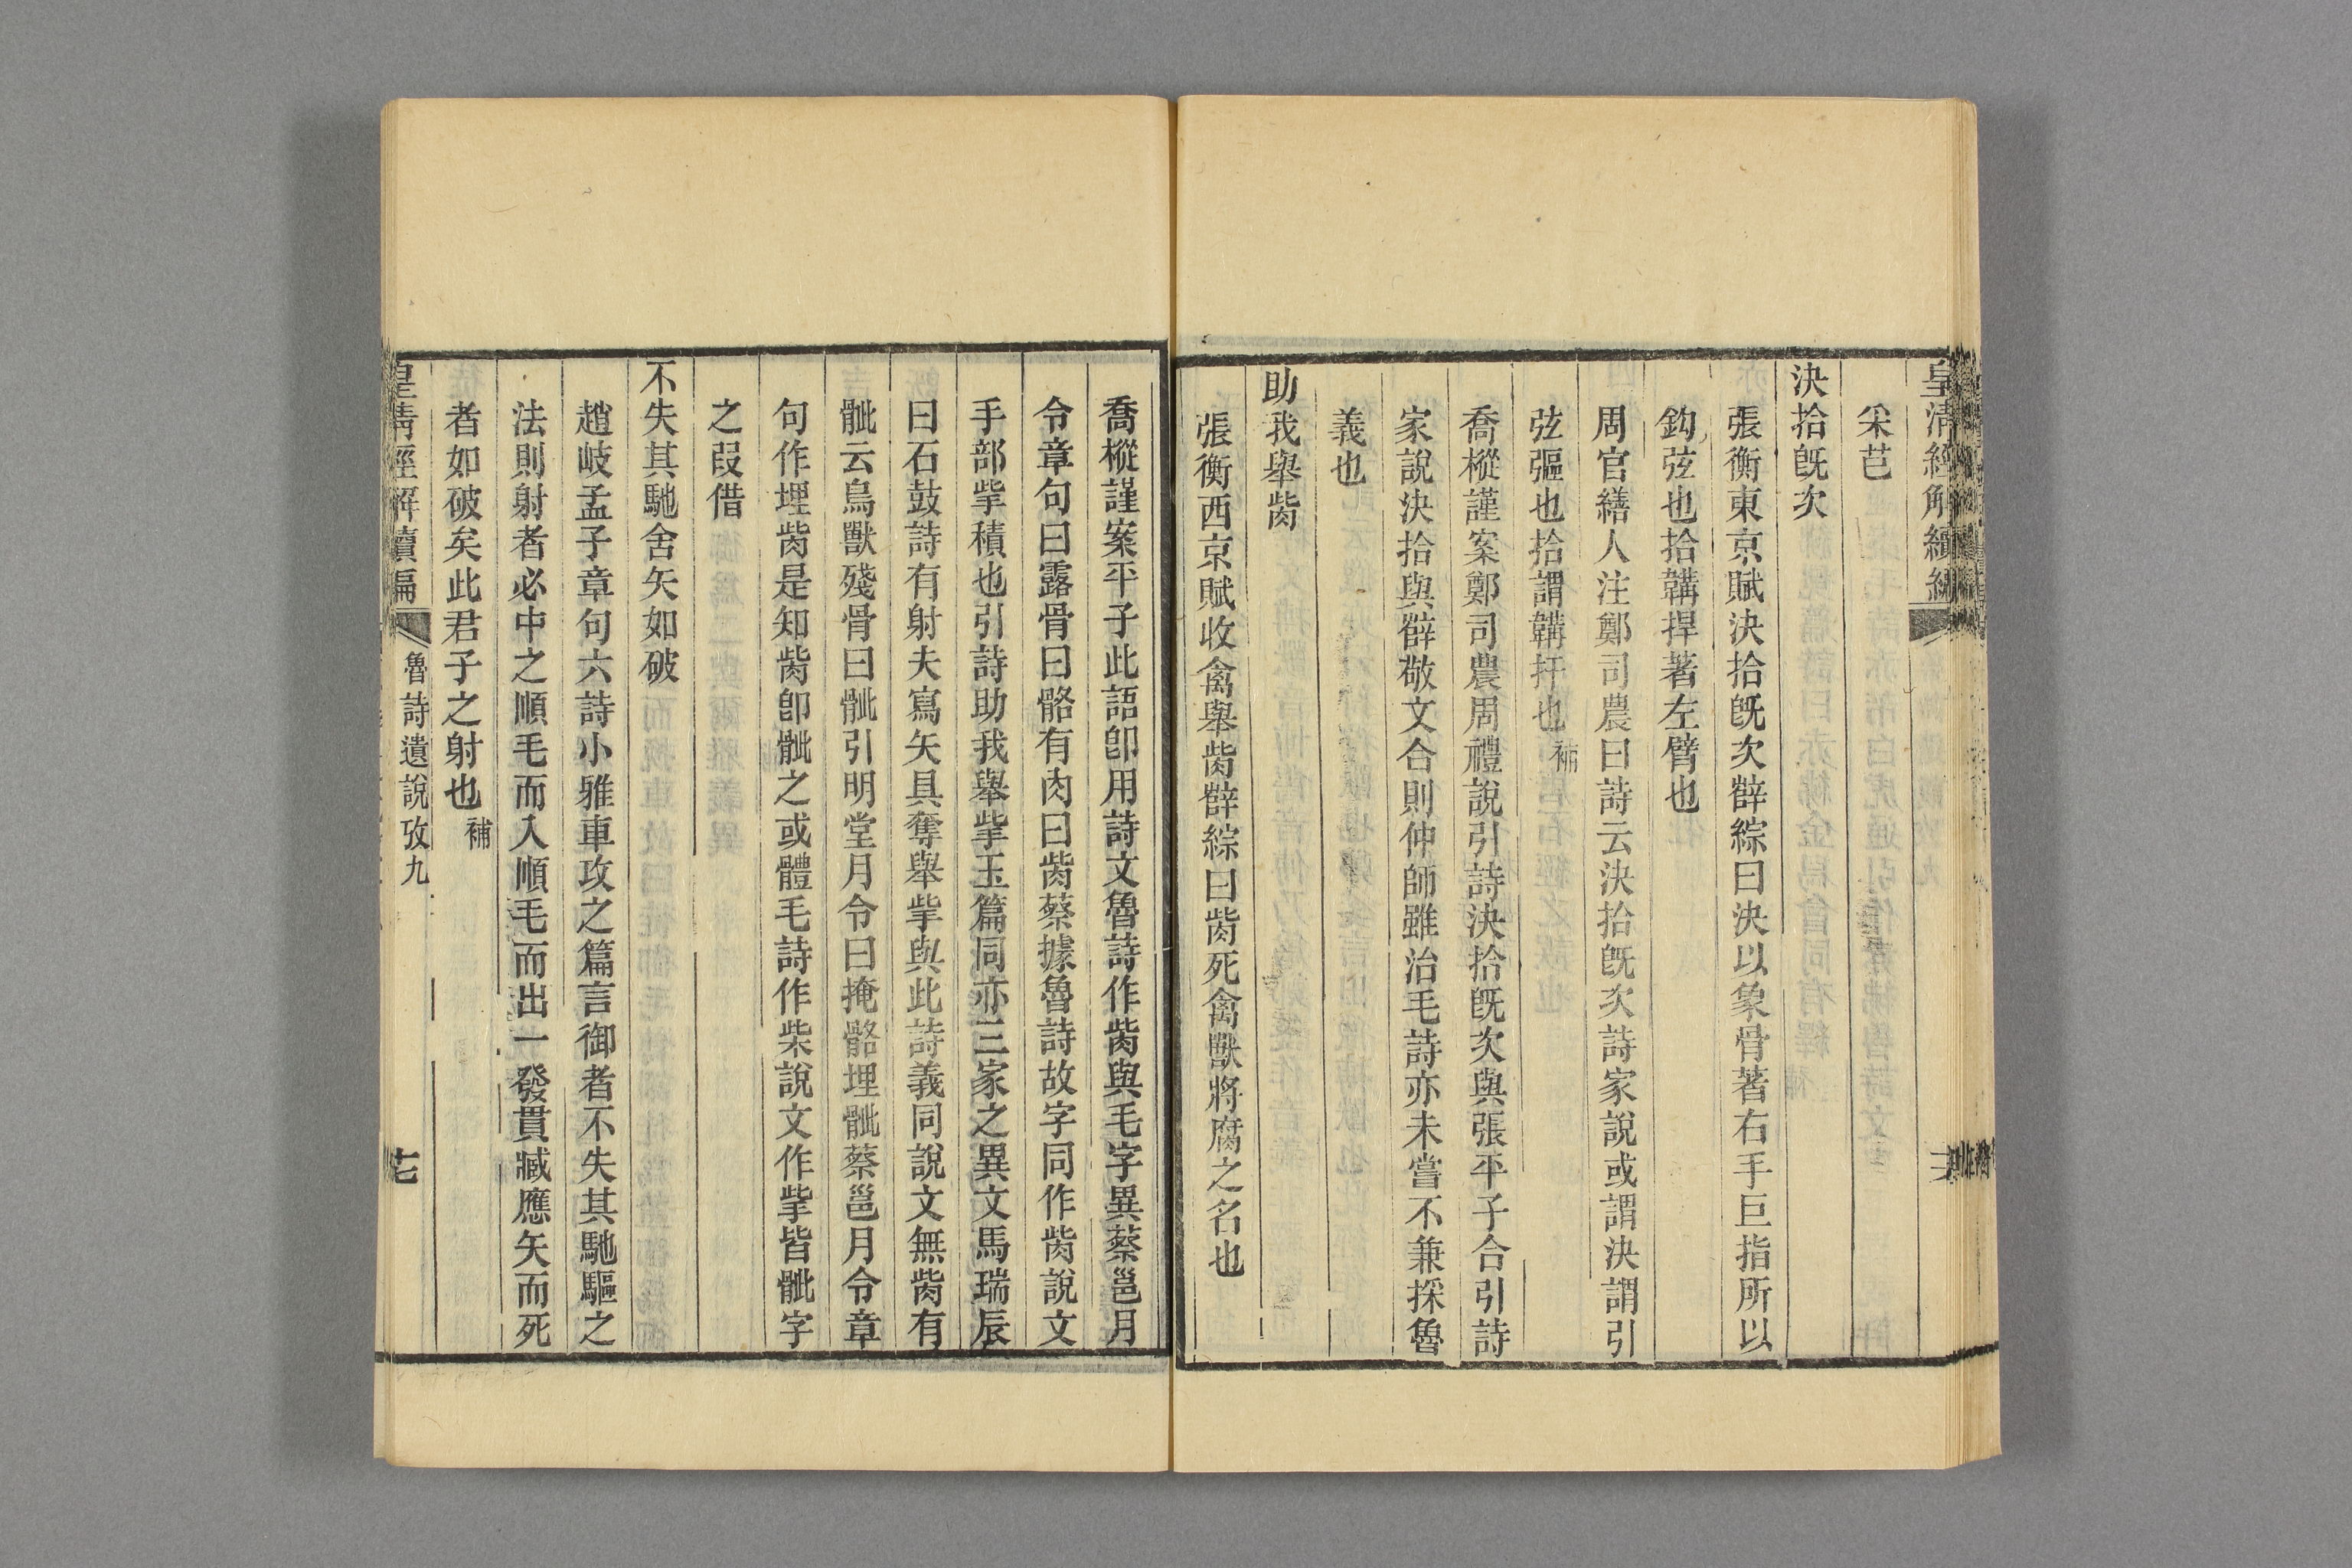 皇清經解續編
采芑
決拾旣次
張衡東京賦決拾旣次薛綜曰決以象骨著右手巨指所以
鈎弦也拾韝捍著左臂也
周官繕人注鄭司農曰詩云決拾旣次詩家說或謂決謂引
弦彄也拾謂韝扞也補
喬樅謹案鄭司農周禮說引詩決拾旣次與張平子合引詩
家說決拾與薛敬文合則仲師雖治毛詩亦未嘗不兼採魯
義也
助我舉胔
張衡西京賦收禽舉胔薛綜曰胔死禽獸將腐之名也
喬樅謹案平子此語卽用詩文魯詩作胔與毛字異蔡邕月
令章句曰露骨曰骼有肉曰胔蔡據魯詩故字同作胔說文
手部掌積也引詩助我舉掌玉篇同亦三家之異文馬瑞辰
曰石鼓詩有射夫寫矢具奪舉掌與此詩義同說文無胔有
骴云鳥獸殘骨曰骴引明堂月令曰掩骼埋骴蔡邕月令章
句作埋胔是知胔卽骴之或體毛詩作柴說文作掌皆骴字
之叚借
不失其馳舍矢如破
趙岐孟子章句六詩小雅車攻之篇言御者不失其馳驅之
法則射者必中之順毛而入順毛而出一發貫臧應矢而死
者如破矣此君子之射也補
皇淸經解續編 魯詩遺說攷九 十七